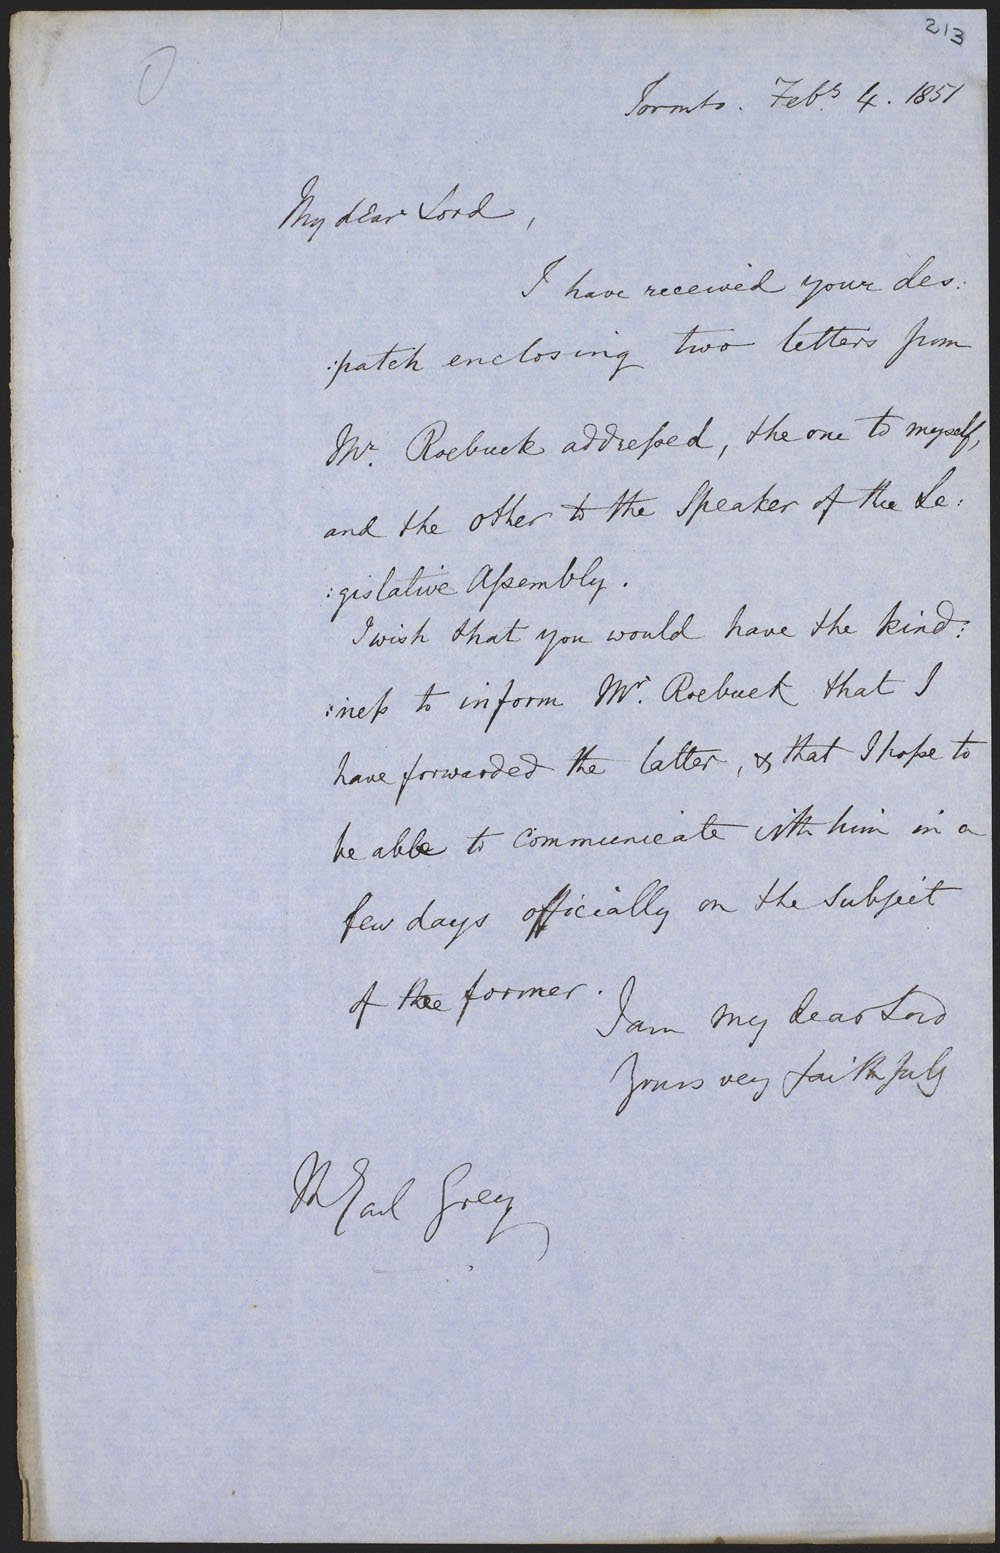 213
Toronto. Feby. 4. 1851
My dear Lord,
I have received your des:
:patch enclosing two letters from
Mr. Roebuck addressed, the one to myself,
and the other to the Speaker of the Le:
:gislative Assembly.
I wish that you would have the kind:
:ness to inform Mr. Roebuck that I
have forwarded the latter, & that I hope to
be able to communicate with him in a
few days officially on the subject
of the former.
I am my dear Lord
Yours very faithfully
The Earl Grey